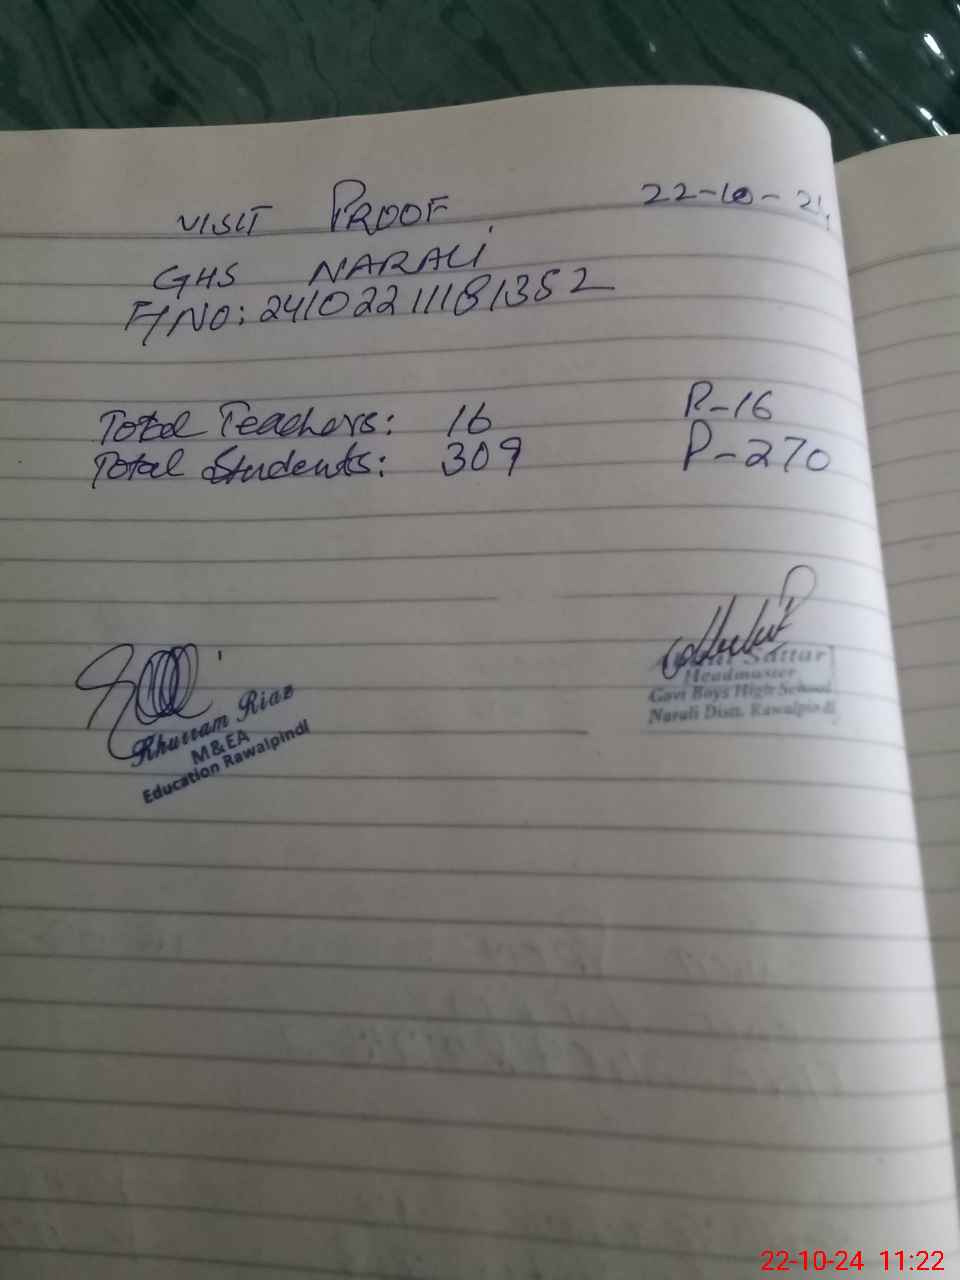 VISIT PROOF 22-10-24
GHS NARALI
F/NO: 24102211181352
Total Teachers: 16 P-16
Total Students: 309 P-270
Sattar
Headmaster
Govt Boys High School
Narali Distt. Rawalpindi
Khurram Riaz
M&EA
Education Rawalpindi
22-10-24 11:22